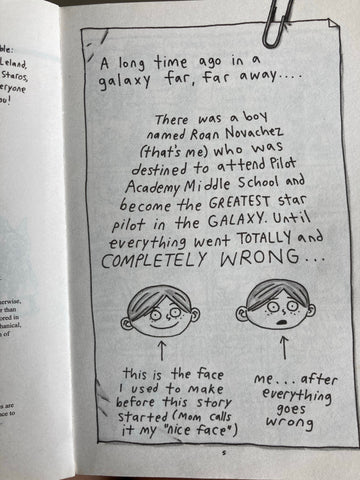 ble:
Leland,
Staros,
eryone
ou!
A long time ago in a
galaxy far, far away....
There was a boy
named Roan Novachez
(that's me) who was
destined to attend Pilot
Academy Middle School and
become the GREATEST star
pilot in the GALAXY. Until
everything went TOTALLY and
COMPLETELY WRONG...
this is the face
I used to make
before this story
started (Mom calls
it my "nice face")
me...after
everything
goes
wrong
erwise,
r than
ored in
hanical,
n of
s are
nce to
5